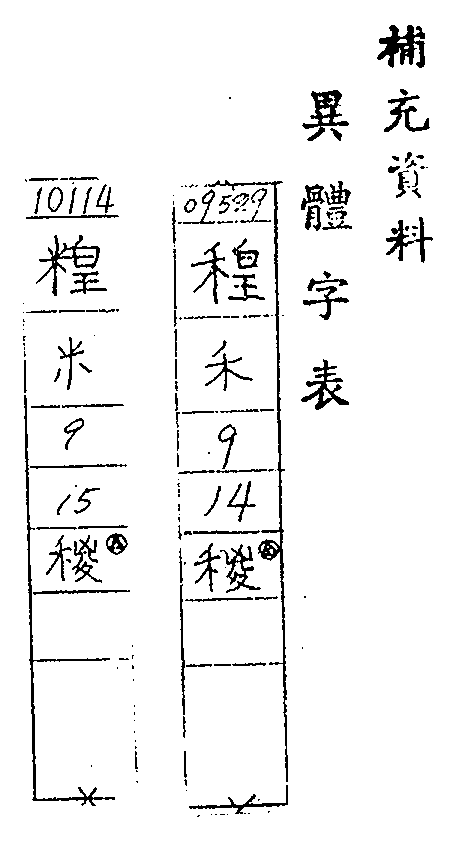 補充資料
異體字表
09529
䅣
禾
9
14
稯
10114
䊗
米
9
15
稯